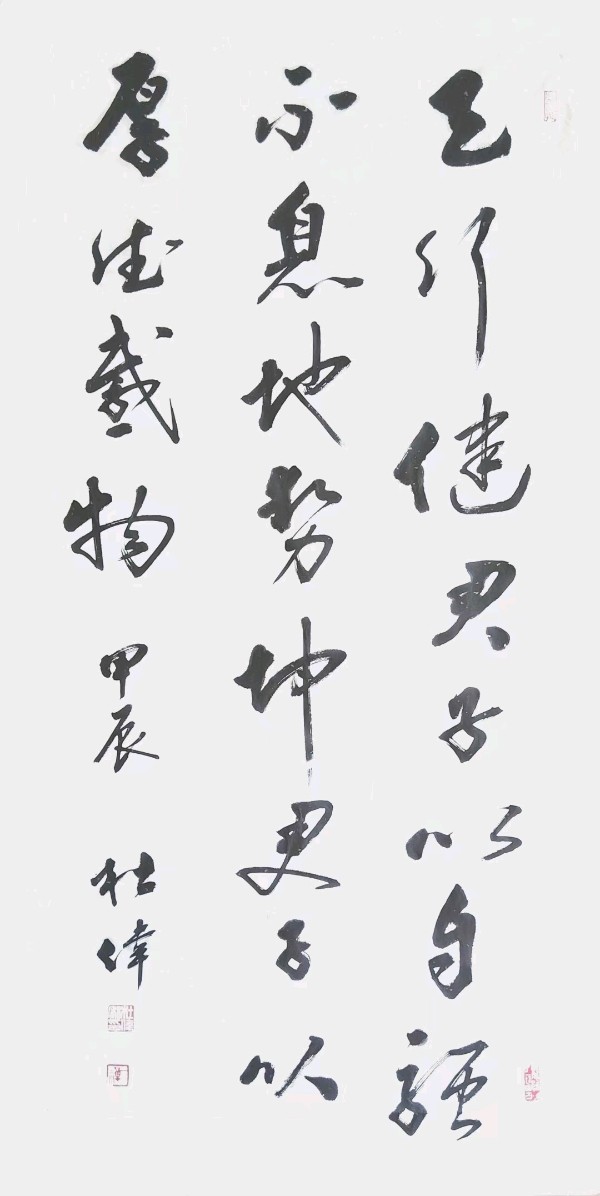 天行健君子以自強
不息地勢坤君子以
厚德載物 甲辰 杜偉